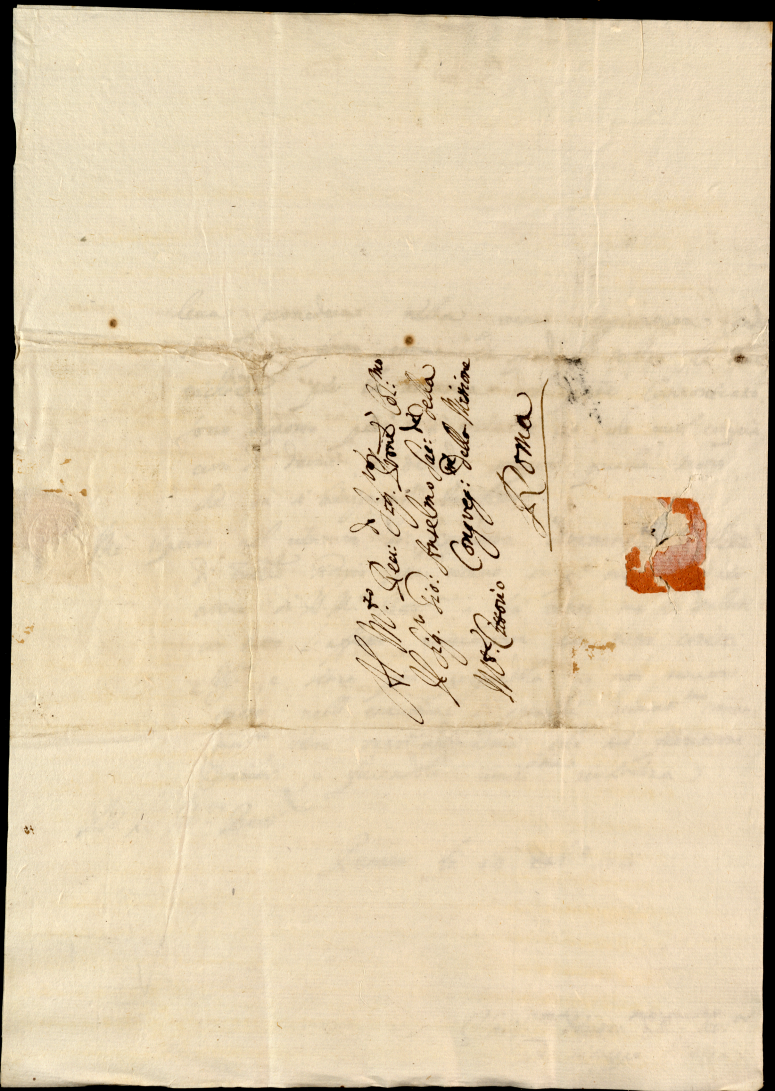 Al M.to Reu: d Sig.r Sig. Prone Col.mo
Il Sig.r Gio: Anselmo Sac: della
Congreg: della Missione
M.te Citorio
Roma